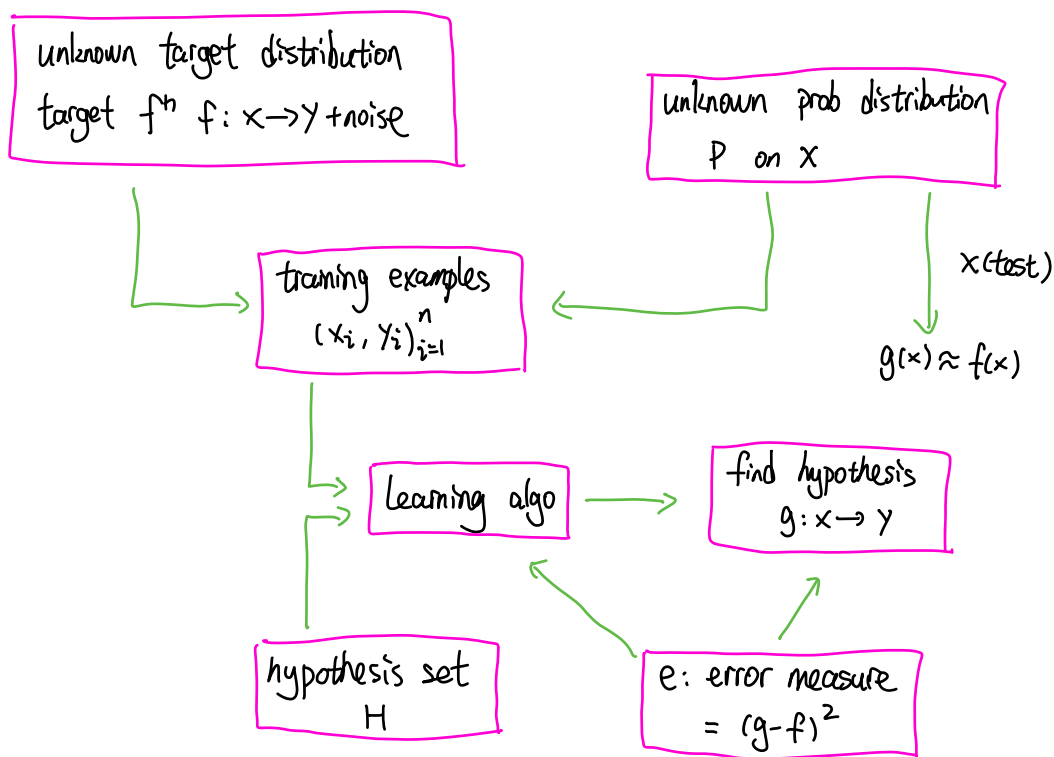 unknown target distribution
target fⁿ f: x→y+noise
unknown prob distribution
P on X
training examples
(xᵢ, yᵢ)ⁿᵢ₌₁
x(test)
g(x) ≈ f(x)
learning algo
find hypothesis
g: x → y
hypothesis set
H
e: error measure
= (g-f)²